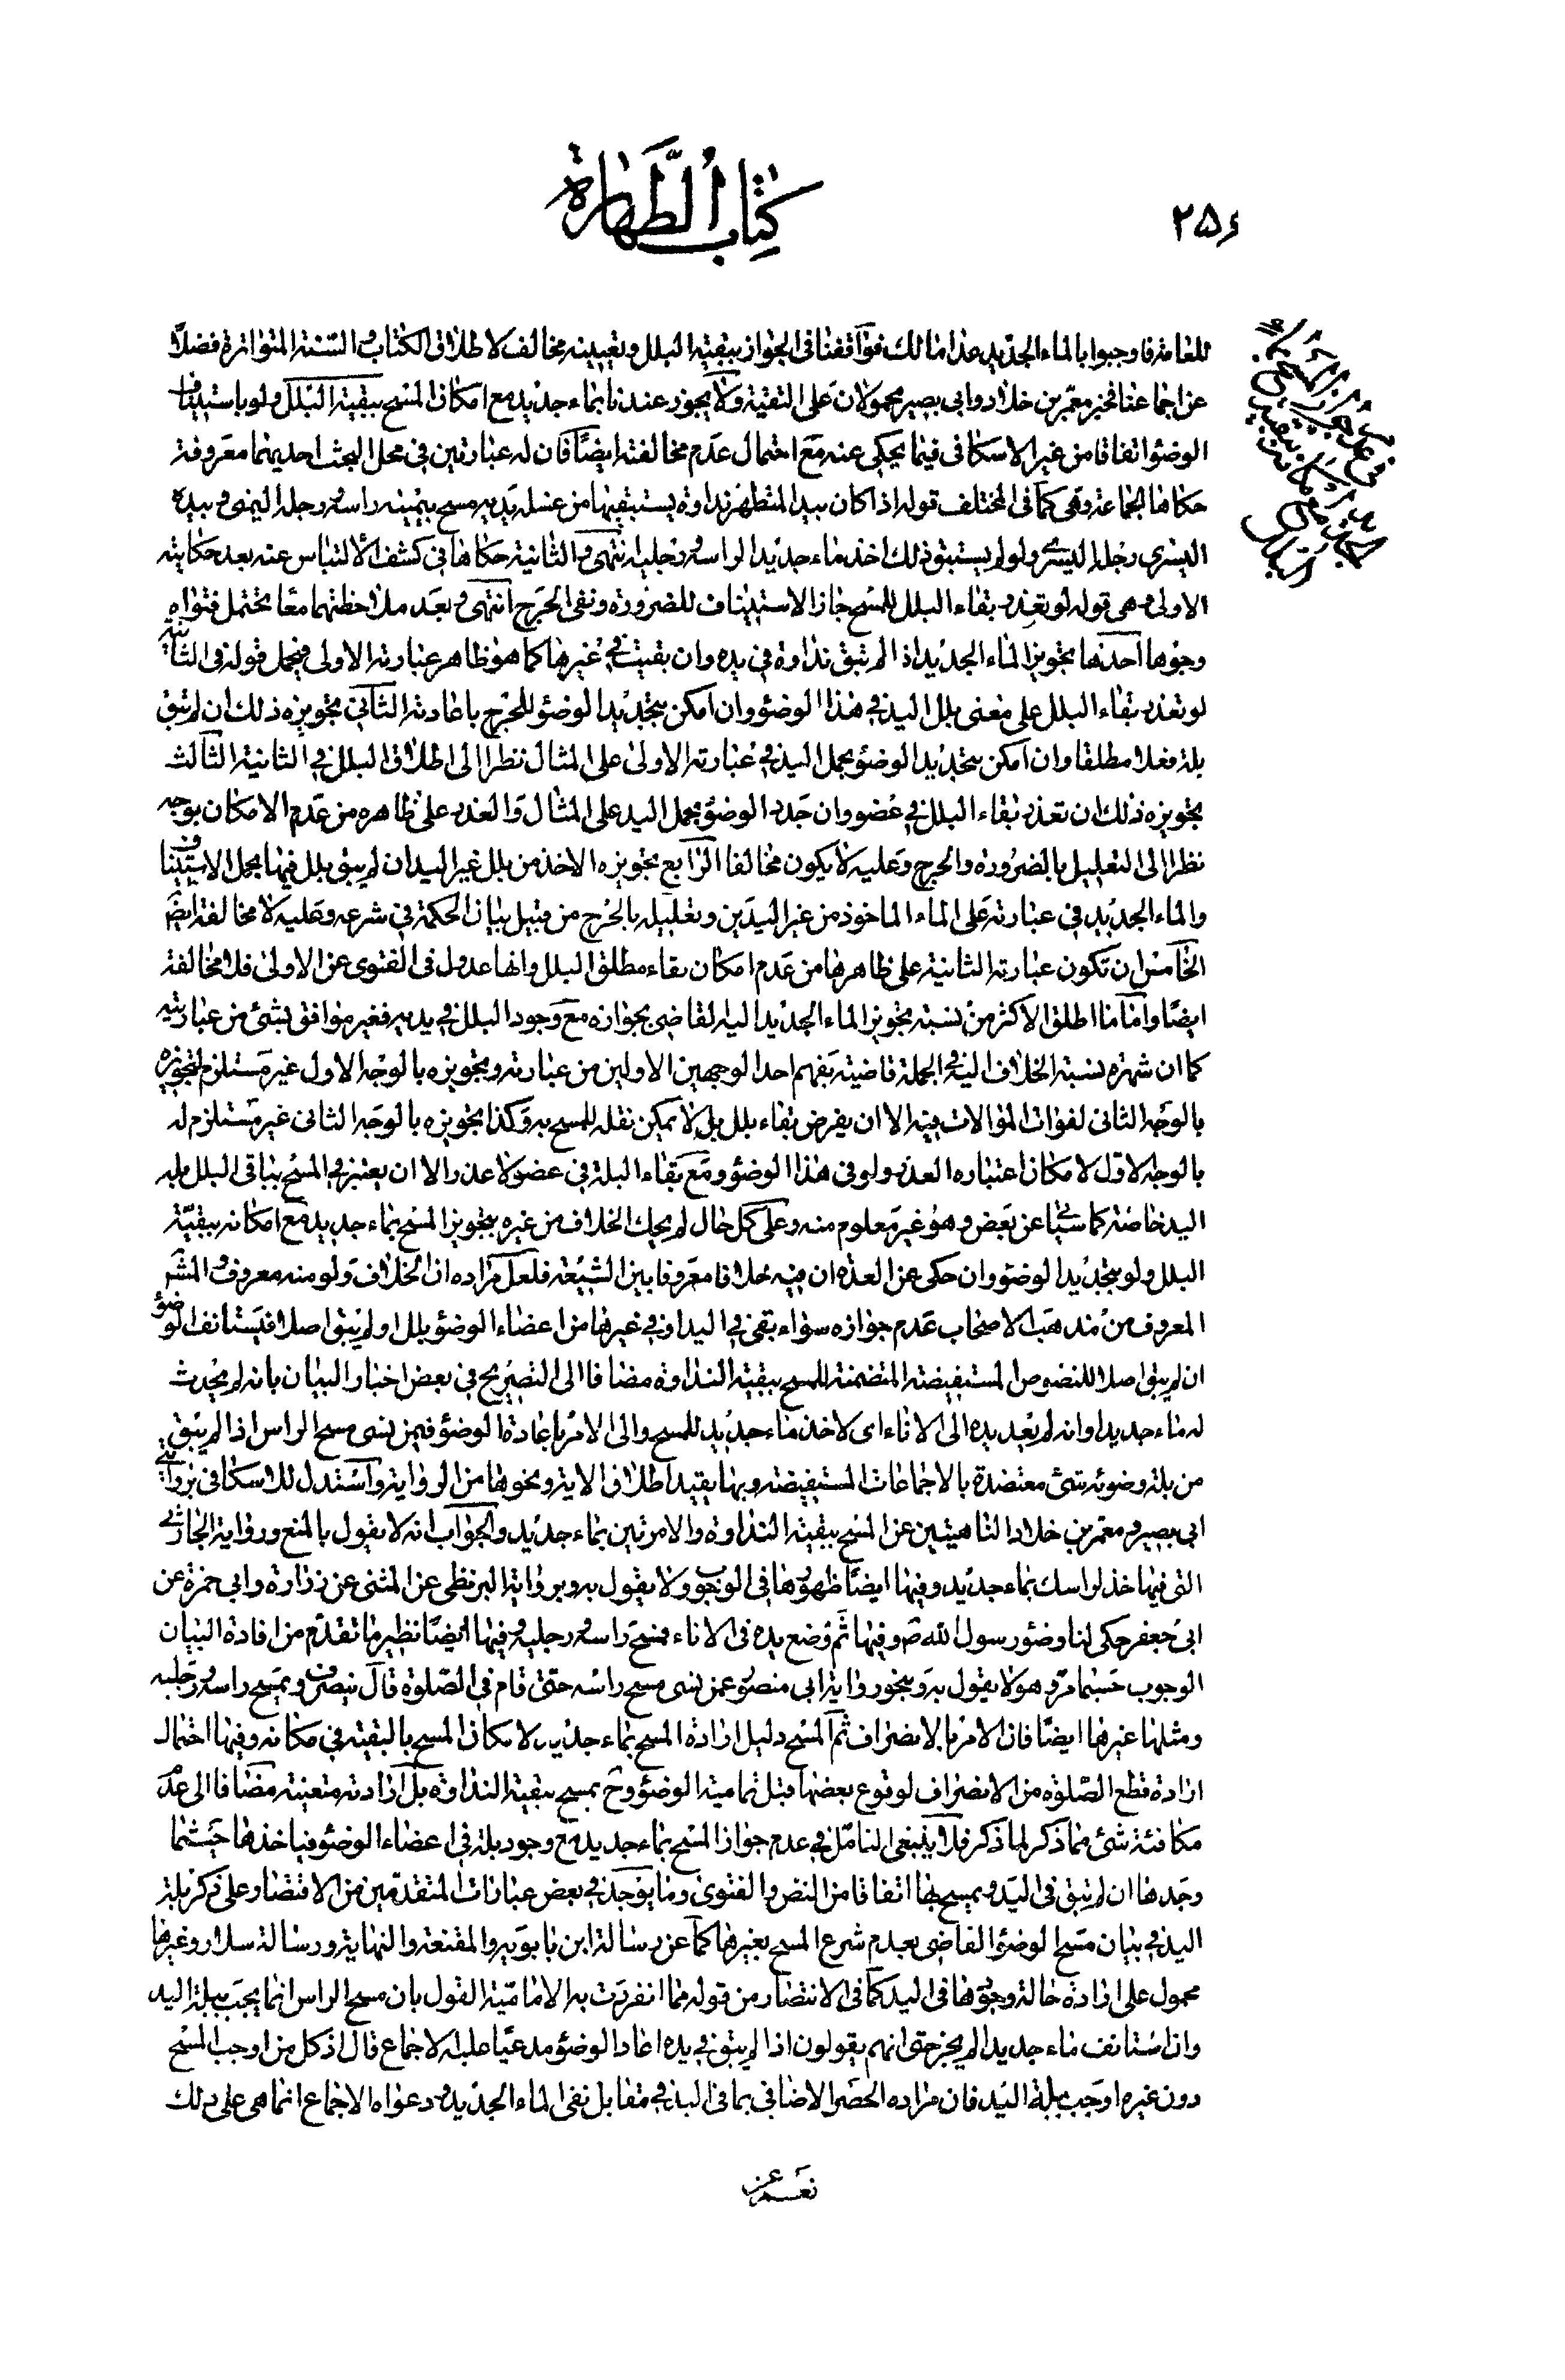 ٢۵۶
كتاب الطهارة
في عدم جواز المسح بماء
للعامة فاوجبوا بالماء الجديد عدا مالك فوافقنا في الجواز ببقية البلل وتعيينه مخالف لاطلاق الكتاب والسنة المتواترة فضلا
عن اجماعنا فخبر معمر بن خلاد وابي بصير محمولان على التقية ولا يجوز عندنا بماء جديد مع امكان المسح ببقية البلل ولو باستيناف
الوضوء اتفاقا من غير الاسكافي فيما يحكى عنه مع احتمال عدم مخالفته ايضا فان له عبارتين في محل البحث احديهما معروفة
حكاها الجماعة وهي كما في المختلف قوله اذا كان بيد المتطهر نداوة يستبقيها من غسل يديه مسح بيمينه راسه ورجله اليمنى وبيده
اليسرى رجله اليسرى ولو لم يستبق ذلك اخذ ماء جديدا لراسه ورجليه انتهى والثانية حكاها في كشف الالتباس عنه بعد حكايته
الاولى وهي قوله لو تعذر بقاء البلل للمسح جاز الاستيناف للضرورة ونفي الحرج انتهى وبعد ملاحظتهما معا يحتمل فتواه
وجوها احدها تجويز الماء الجديد اذا لم تبق نداوة في يده وان بقيت في غيرها كما هو ظاهر عبارته الاولى فيحمل قوله في الثانية
لو تعذر بقاء البلل على معنى بلل اليد في هذا الوضوء وان امكن بتجديد الوضوء للحرج باعادته الثاني تجويزه ذلك ان لم تبق
بلة فعلا مطلقا وان امكن بتجديد الوضوء بحمل اليد في عبارته الاولى على المثال نظرا الى اطلاق البلل في الثانية الثالث
تجويزه ذلك ان تعذر بقاء البلل في عضو وان جدد الوضوء بحمل اليد على المثال والعذر على ظاهره من عدم الامكان بوجه
نظرا الى التعليل بالضرورة والحرج وعليه لا يكون مخالفا الرابع تجويزه الاخذ من بلل غير اليد ان لم يبق بلل فيها بحمل الاستيناف
والماء الجديد في عبارته على الماء الماخوذ من غير اليدين وتعليله بالحرج من قبيل بيان الحكمة في شرعه وعليه لا مخالفة ايضا
الخامس ان تكون عبارته الثانية على ظاهرها من عدم امكان بقاء مطلق البلل وانها عدول في الفتوى عن الاولى فلا مخالفة
ايضا واما ما اطلق الاكثر من نسبة تجويز الماء الجديد اليه القاضي بجوازه مع وجود البلل في يديه فغير موافق بشئ من عبارتيه
كما ان شهرة نسبة الخلاف اليه في الجملة قاضية بفهم احد الوجهين الاولين من عبارته وتجويزه بالوجه الاول غير مستلزم لتجويزه
بالوجه الثاني لفوات الموالات فيه الا ان يفرض بقاء بلل بل لا يمكن نقله للمسح به وكذا تجويزه بالوجه الثاني غير مستلزم له
بالوجه الاول لامكان اعتباره العذر ولو في هذا الوضوء ومع بقاء البلة في عضو لا عذر الا ان يعتبر في المسح بباقي البلل بلة
اليد خاصة كما سياتي عن بعض وهو غير معلوم منه وعلى كل حال لم يحك الخلاف من غيره بتجويز المسح بماء جديد مع امكانه ببقية
البلل ولو بتجديد الوضوء وان حكى عن العدة ان فيه خلافا معروفا بين الشيعة فلعل مراده ان الخلاف ولو منه معروف والمشهور
المعروف من مذهب الاصحاب عدم جوازه سواء بقى في اليد او في غيرها من اعضاء الوضوء بلل او لم يبق اصلا فيستانف الوضوء
ان لم يبق اصلا للنصوص المستفيضة المتضمنة للمسح ببقية النداوة مضافا الى التصريح في بعض اخبار البيان بانه لم يحدث
له ماء جديدا وانه لم يعد يده الى الاناء اى لاخذ ماء جديد للمسح والى الامر باعادة الوضوء فيمن نسى مسح الراس اذا لم يبق
من بلة وضوئه شئ معتضدة بالاجماعات المستفيضة وبها يقيد اطلاق الاية ونحوها من الرواية واستدل للاسكافي بروايتي
ابي بصير ومعمر بن خلاد الناهيتين عن المسح ببقية النداوة والامرتين بماء جديد والجواب انه لا يقول بالمنع ورواية
التي فيها خذ لراسك بماء جديد وفيها ايضا ظهورها في الوجوب ولا يقول به وبرواية البزنطي عن المثنى عن زرارة وابي حمزة عن
ابي جعفر حكى لنا وضوء رسول الله ص وفيها ثم وضع يده في الاناء فمسح راسه ورجليه وفيها ايضا نظير ما تقدم من افادة البيان
الوجوب حسبما مر وهو لا يقول به وبنحو رواية ابي منصور عمن نسى مسح راسه حتى قام في الصلوة قال ينصرف ويمسح راسه ورجليه
ومثلها غيرها ايضا فان الامر بالانصراف ثم المسح دليل ارادة المسح بماء جديد لامكان المسح بالبقية في مكانه وفيها احتمال
ارادة قطع الصلوة من الانصراف لوقوع بعضها قبل تمامية الوضوء وح يمسح ببقية النداوة بل ارادته متعينة مضافا الى عدم
مكافئة شئ مما ذكر لما ذكر فلا ينبغي التامل في عدم جواز المسح بماء جديد مع وجود بلة في اعضاء الوضوء فياخذها حيثما
وجدها ان لم تبق في اليد ويمسح بها اتفاقا من النص والفتوى وما يوجد في بعض عبارات المتقدمين من الاقتصار على ذكر بلة
اليد في بيان مسح الوضوء القاضي بعدم شرع المسح بغيرها كما عن رسالة ابن بابويه والمقنعة والنهاية ورسالة سلار وغيرها
محمول على ارادة حالة وجودها في اليد كما في الانتصار من قوله مما انفردت به الامامية القول بان مسح الراس انما يجب ببلة اليد
وان استانف ماء جديدا لم يجز حتى انهم يقولون اذا لم يبق في يده اعاد الوضوء مدعيا عليه الاجماع قال اذ كل من اوجب المسح
دون غيره اوجب ببلة اليد فان مراده الحصر الاضافي بما في اليد في مقابل نفي الماء الجديد ودعواه الاجماع انما هي على ذلك
نعم عن